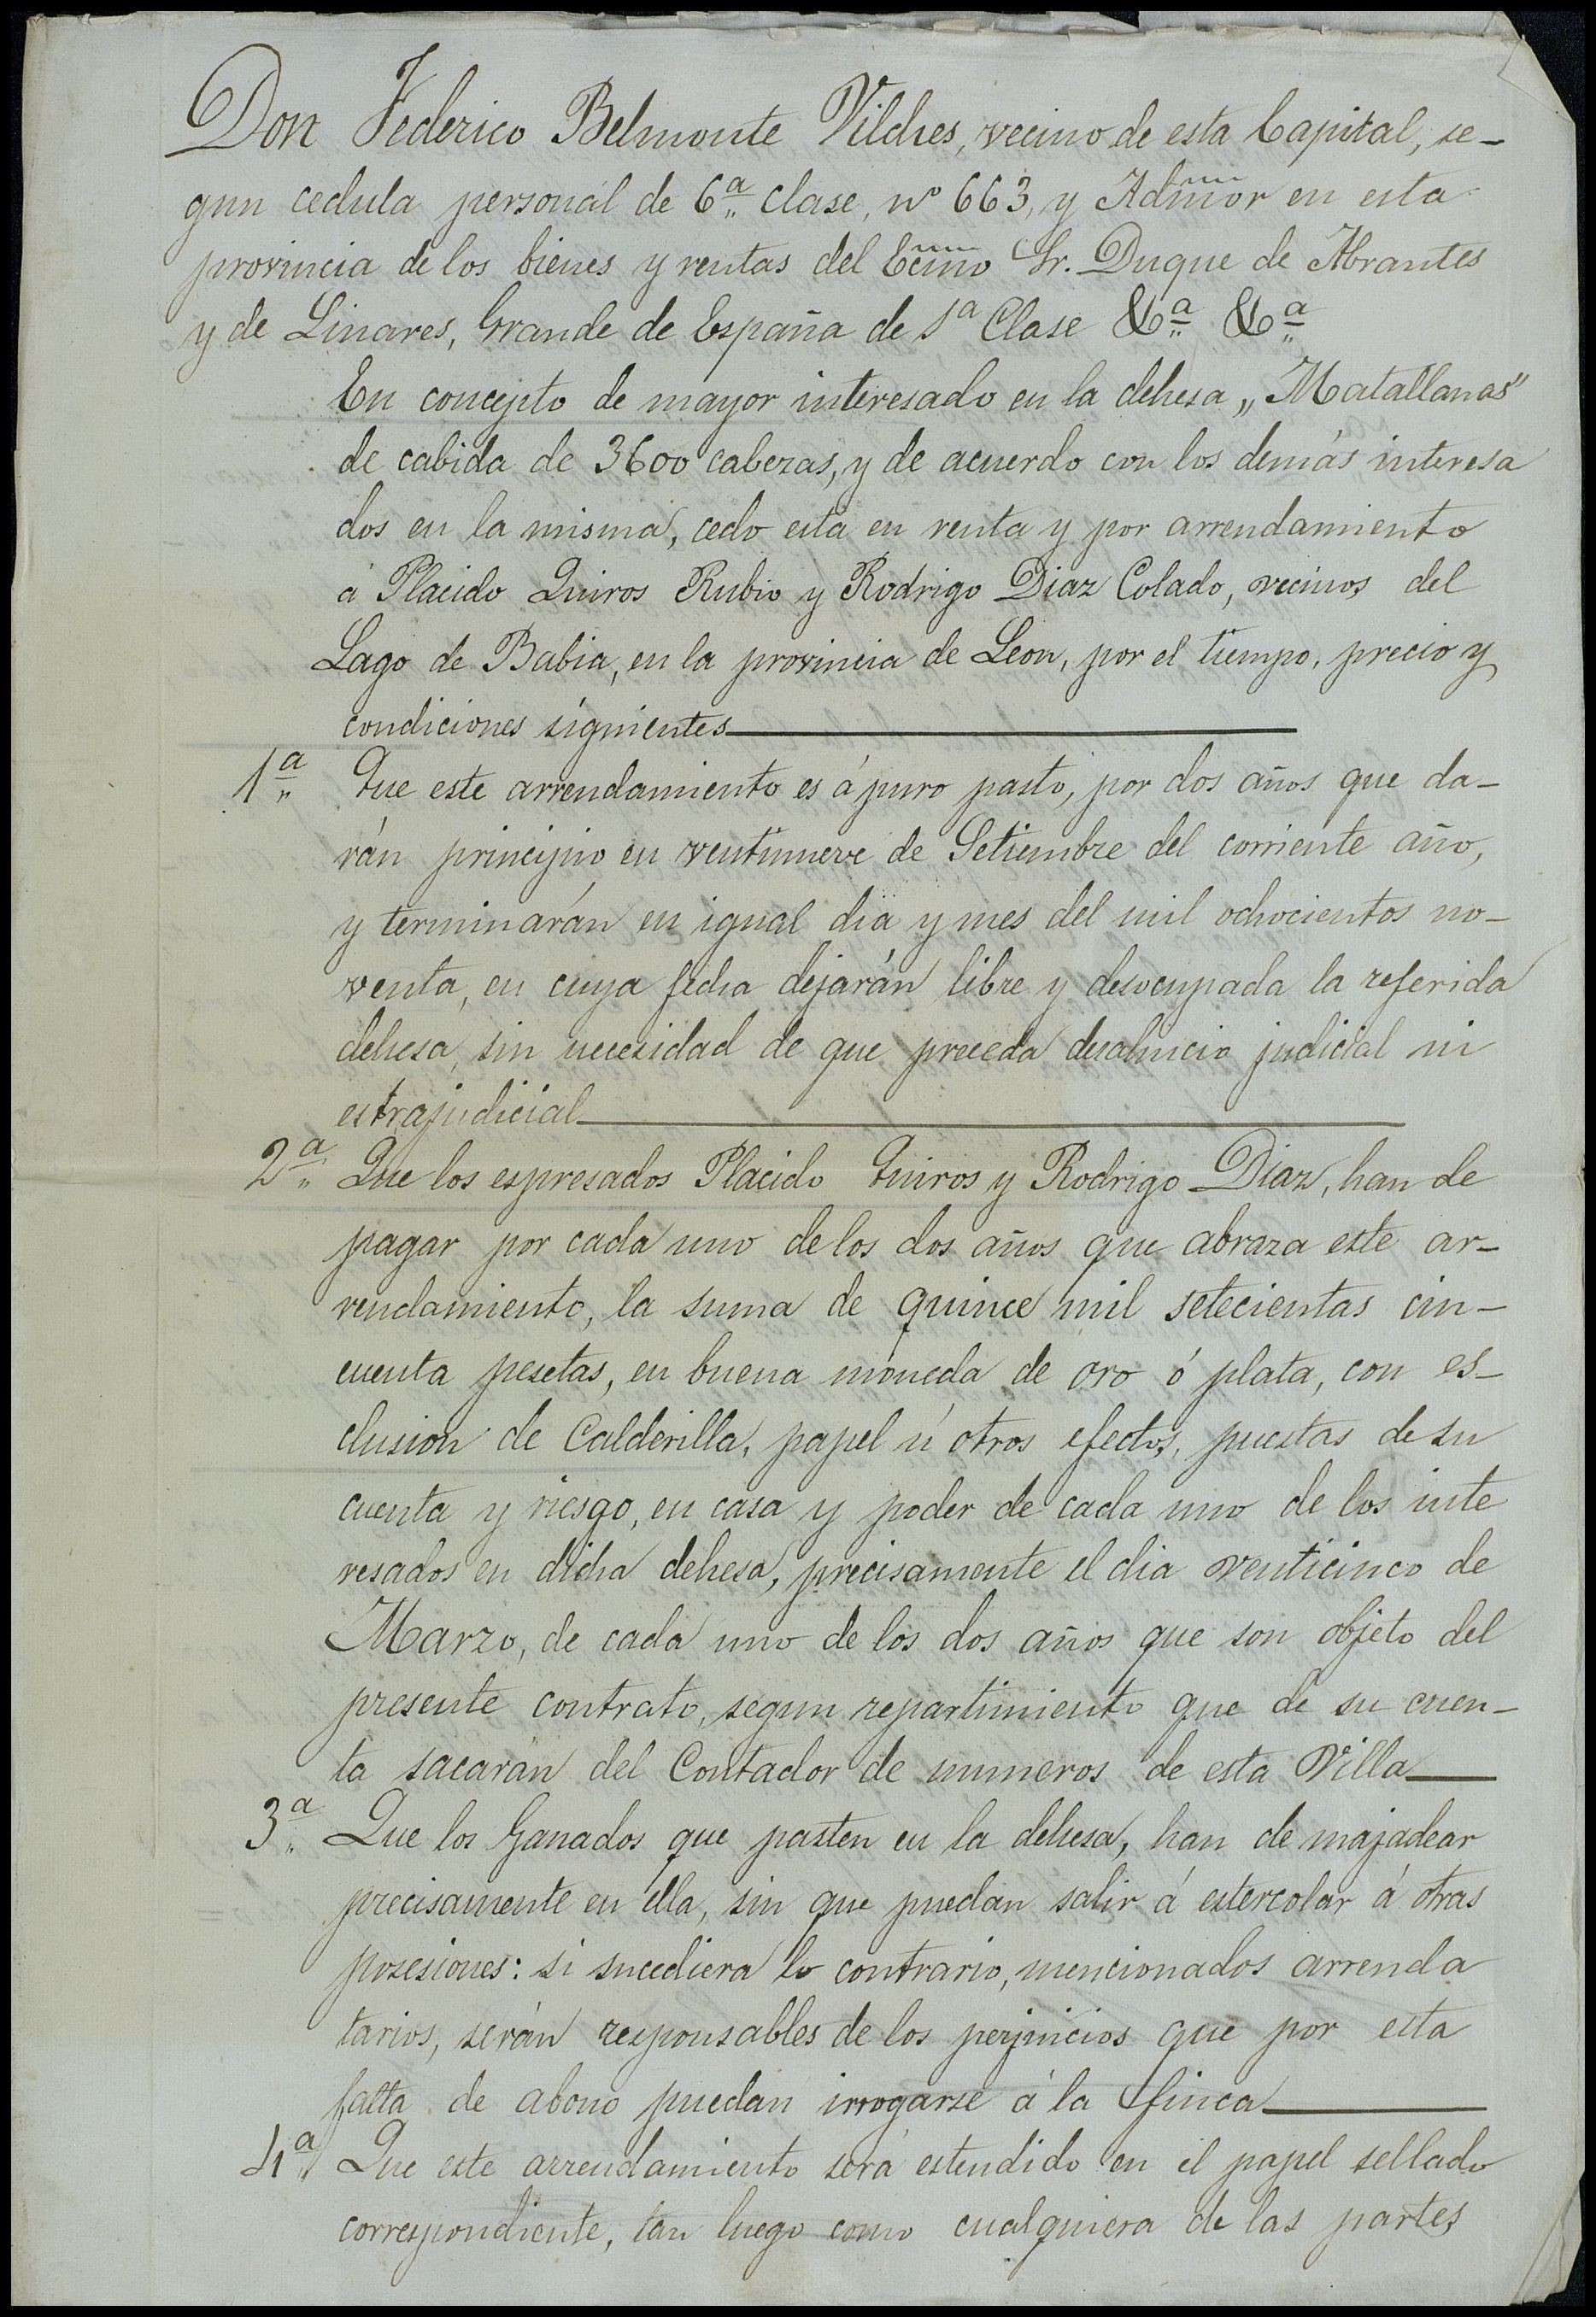 Don Federico Belmonte Vilches, vecino de esta Capital, se-
gun cedula personal de 6ª clase, nº 663, y Admor en esta
provincia de los bienes y rentas del Ecmo Sr. Duque de Abrantes
y de Linares, Grande de España de 1ª Clase &ª &ª
En concepto de mayor interesado en la dehesa „Matallanas"
de cabida de 3600 cabezas, y de acuerdo con los demás interesa
dos en la misma, cedo esta en renta y por arrendamiento
á Placido Quiros Rubio y Rodrigo Diaz Colado, vecinos del
Lago de Babia, en la provincia de Leon, por el tiempo, precio y
condiciones siguientes
1ª Que este arrendamiento es á puro pasto, por dos años que da-
rán principio en ventinueve de Setiembre del corriente año,
y terminarán en igual dia y mes del mil ochocientos no-
venta, en cuya fecha dejarán libre y desocupada la referida
dehesa, sin necesidad de que preceda desahucio judicial ni
estrajudicial
2ª Que los espresados Placido Quiros y Rodrigo Diaz, han de
pagar por cada uno de los dos años que abraza este ar-
rendamiento, la suma de quince mil setecientas cin-
cuenta pesetas, en buena moneda de oro ó plata, con es-
clusion de Calderilla, papel ú otros efectos, puestas de su
cuenta y riesgo, en casa y poder de cada uno de los inte
resados en dicha dehesa, precisamente el dia venticinco de
Marzo, de cada uno de los dos años que son objeto del
presente contrato, segun repartimiento que de su cuen-
ta sacarán del Contador de numeros de esta Villa
3ª Que los Ganados que pasten en la dehesa, han de majadear
precisamente en ella, sin que puedan salir á estercolar á otras
posesiones: si sucediera lo contrario, mencionados arrenda
tarios, serán responsables de los perjuicios que por esta
falta de abono puedan irrogarse á la finca
4ª Que este arrendamiento será estendido en el papel sellado
correspondiente, tan luego como cualquiera de las partes